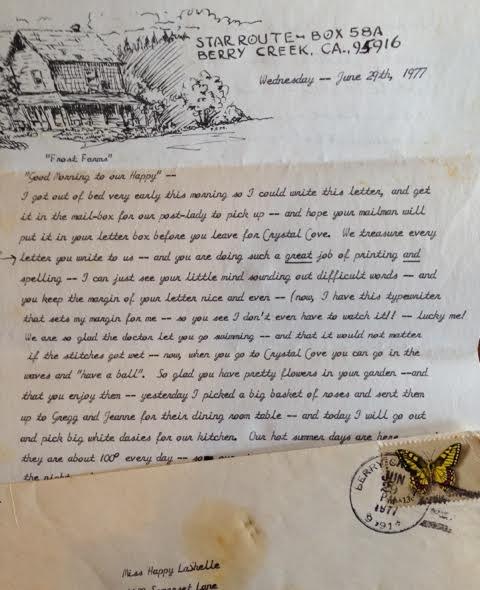 STAR ROUTE - BOX 58A
BERRY CREEK, CA., 95916
Wednesday -- June 29th, 1977
"Frost Farms"
"Good Morning to our Happy" --
I got out of bed very early this morning so I could write this letter, and get
it in the mail-box for our post-lady to pick up -- and hope your mailman will
put it in your letter box before you leave for Crystal Cove. We treasure every
letter you write to us -- and you are doing such a great job of printing and
spelling -- I can just see your little mind sounding out difficult words -- and
you keep the margin of your letter nice and even -- (now, I have this typewriter
that sets my margin for me -- so you see I don't even have to watch it!! -- lucky me!
We are so glad the doctor let you go swimming -- and that it would not matter
if the stitches got wet -- now, when you go to Crystal Cove you can go in the
waves and "have a ball". So glad you have pretty flowers in your garden --and
that you enjoy them -- yesterday I picked a big basket of roses and sent them
up to Gregg and Jeanne for their dining room table -- and today I will go out
and pick big white dasies for our kitchen. Our hot summer days are here
they are about 100° every day -- so our
the night
BERRY CR
JUN
29
PM
1977
USA13c
Miss Happy LaShelle
Somerset Lane